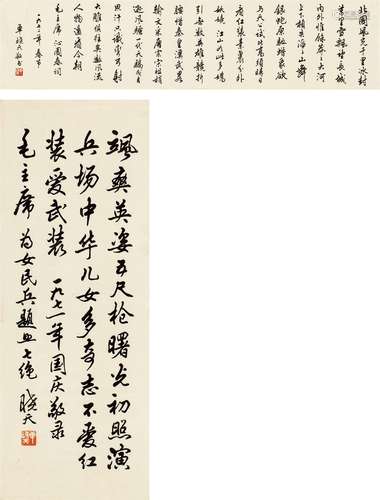 北國風光千里冰封
萬里雪飄望長城
内外惟餘莽莽大河
上下頓失滔滔山舞
銀蛇原馳蠟象欲
与天公試比高須晴日
看红装素裹分外
妖嬈江山如此多嬌
引無數英雄競折
腰惜秦皇漢武略
輸文采唐宗宋祖稍
遜風騷一代天驕成吉
思汗只識彎弓射
大雕俱往矣數風流
人物還看今朝
毛主席沁园春詞
一九七二年春节
晓天敬书
颯爽英姿五尺枪曙光初照演
兵场中华儿女多奇志不爱红
装爱武装 一九七一年国庆敬录
毛主席为女民兵题照七绝 晓天